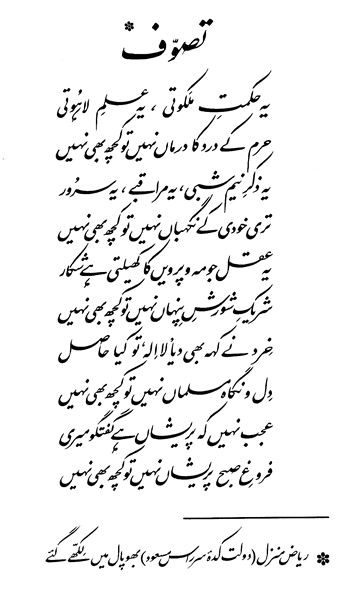 تصوّف *
یہ حکمتِ ملکوتی ، یہ علمِ لاہُوتی
حرم کے درد کا درماں نہیں تو کچھ بھی نہیں
یہ ذکرِ نیم شبی ، یہ مراقبے ، یہ سُرور
تری خودی کے نگہباں نہیں تو کچھ بھی نہیں
یہ عقل جو مہ و پرویں کا کھیلتی ہے شکار
شریکِ شورشِ پنہاں نہیں تو کچھ بھی نہیں
خِرد نے کہہ بھی دیا ’لااِلٰہ‘ تو کیا حاصل
دل و نگاہ مسلماں نہیں تو کچھ بھی نہیں
عجب نہیں کہ پریشاں ہے گفتگو میری
فروغِ صبح پریشاں نہیں تو کچھ بھی نہیں
* ریاض منزل (دولت کدۂ سرراس مسعود) بھوپال میں لکھے گئے